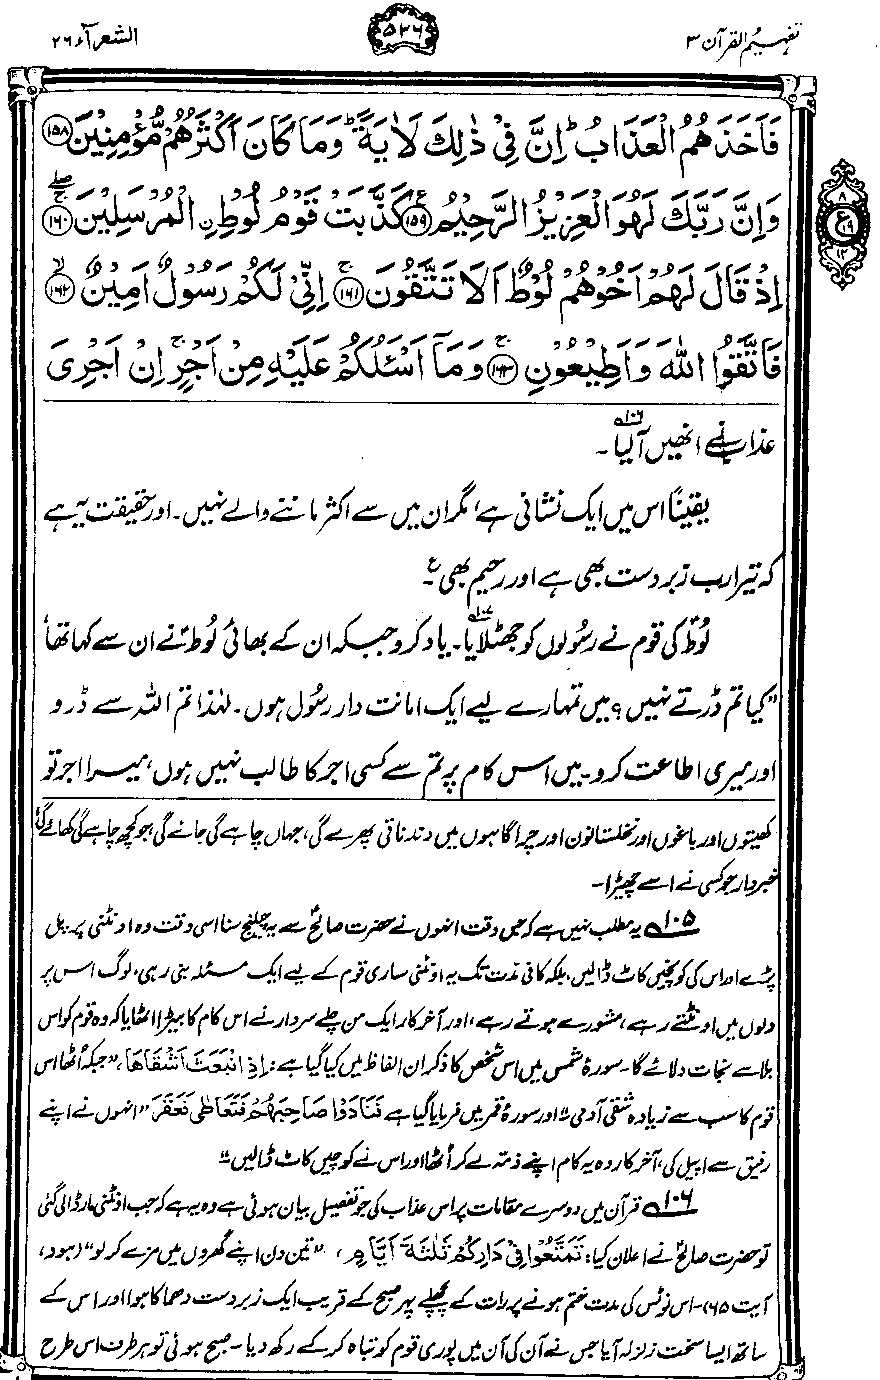 تفہیم القرآن ۳
۵۲۶
الشعرآء ۲۶
فَاَخَذَهُمُ الْعَذَابُ ؕ اِنَّ فِیْ ذٰلِكَ لَاٰیَةً ؕ وَمَا كَانَ اَكْثَرُهُمْ مُّؤْمِنِیْنَ ۝۱۵۸
وَاِنَّ رَبَّكَ لَهُوَ الْعَزِیْزُ الرَّحِیْمُ ۝۱۵۹ كَذَّبَتْ قَوْمُ لُوْطِ ِ۟الْمُرْسَلِیْنَ ۝۱۶۰
اِذْ قَالَ لَهُمْ اَخُوْهُمْ لُوْطٌ اَلَا تَتَّقُوْنَ ۝۱۶۱ اِنِّیْ لَكُمْ رَسُوْلٌ اَمِیْنٌ ۝۱۶۲
فَاتَّقُوا اللّٰهَ وَاَطِیْعُوْنِ ۝۱۶۳ وَمَاۤ اَسْـَٔلُكُمْ عَلَیْهِ مِنْ اَجْرٍ ۚ اِنْ اَجْرِیَ
ع
۸
۱۹
۱۲
عذاب نے انھیں آلیا۔۱۰۶
یقیناً اس میں ایک نشانی ہے، مگر ان میں سے اکثر ماننے والے نہیں۔ اور حقیقت یہ ہے
کہ تیرا رب زبردست بھی ہے اور رحیم بھی۔ع
لُوطؑ کی قوم نے رسُولوں کو جھٹلایا۔۱۰۷ یاد کرو جبکہ ان کے بھائی لُوطؑ نے ان سے کہا تھا
”کیا تم ڈرتے نہیں؟ میں تمہارے لیے ایک امانت دار رسُول ہوں۔ لہٰذا تم اللہ سے ڈرو
اور میری اطاعت کرو۔ میں اس کام پر تم سے کسی اجر کا طالب نہیں ہوں، میرا اجر تو
کھیتوں اور باغوں اور نخلستانون اور چراگاہوں میں دندناتی پھرے گی، جہاں چاہے گی جائے گی، جو کچھ چاہے گی کھائے گی،
خبردار جو کسی نے اسے چھیڑا۔
۱۰۵؎ یہ مطلب نہیں ہے کہ جس وقت انہوں نے حضرت صالحؑ سے یہ چیلنج سنا اسی وقت وہ اونٹنی پر پل
پڑے اور اس کی کونچیں کاٹ ڈالیں، بلکہ کافی مدت تک یہ اونٹنی ساری قوم کے لیے ایک مسئلہ بنی رہی، لوگ اس پر
دلوں میں اونٹتے رہے، مشورے ہوتے رہے، اور آخر کار ایک من چلے سردار نے اس کام کا بیڑا اٹھایا کہ وہ قوم کو اس
بلا سے نجات دلائے گا۔ سورۂ شمس میں اس شخص کا ذکر ان الفاظ میں کیا گیا ہے: اِذِ انْۢبَعَثَ اَشْقَاهَا، ”جبکہ اُٹھا اس
قوم کا سب سے زیادہ شقی آدمی“ اور سورۂ قمر میں فرمایا گیا ہے فَنَادَوْا صَاحِبَهُمْ فَتَعَاطٰی فَعَقَرَ ”انہوں نے اپنے
رفیق سے اپیل کی، آخر کار وہ یہ کام اپنے ذمہ لے کر اُٹھا اور اس نے کوچیں کاٹ ڈالیں“
۱۰۶؎ قرآن میں دوسرے مقامات پر اس عذاب کی جو تفصیل بیان ہوئی ہے وہ یہ ہے کہ جب اونٹنی مار ڈالی گئی
تو حضرت صالحؑ نے اعلان کیا: تَمَتَّعُوْا فِیْ دَارِكُمْ ثَلٰثَةَ اَیَّامٍ، ”تین دن اپنے گھروں میں مزے کر لو“ (ہود،
آیت ۶۵)۔ اس نوٹس کی مدت ختم ہونے پر رات کے پچھلے پہر صبح کے قریب ایک زبردست دھماکا ہوا اور اس کے
ساتھ ایسا سخت زلزلہ آیا جس نے آن کی آن میں پوری قوم کو تباہ کر کے رکھ دیا۔ صبح ہوئی تو ہر طرف اس طرح